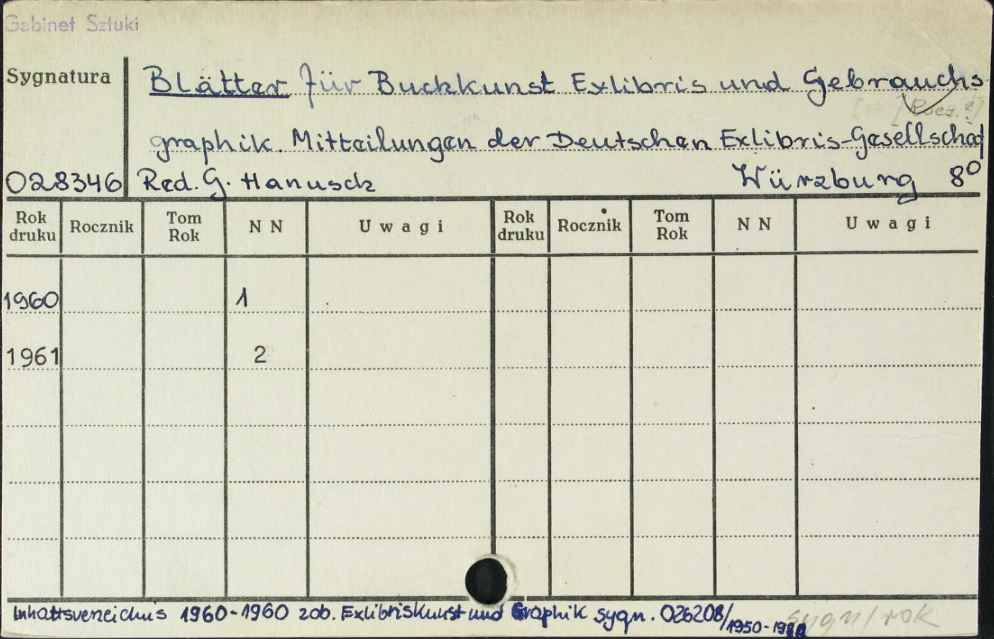 Gabinet Sztuki
Sygnatura
Blätter für Buchkunst Exlibris und Gebrauchs
graphik. Mitteilungen der Deutschen Exlibris-Gesellschaf
028346 Red. G. Hanusch Würzburg 8°
Rok druku Rocznik Tom Rok N N Uwagi Rok druku Rocznik Tom Rok N N Uwagi
1960 1
1961 2
Inhaltsverzeichnis 1960-1960 zob. Exlibriskunst und Graphik sygn. 026208/1950- sygn/rok